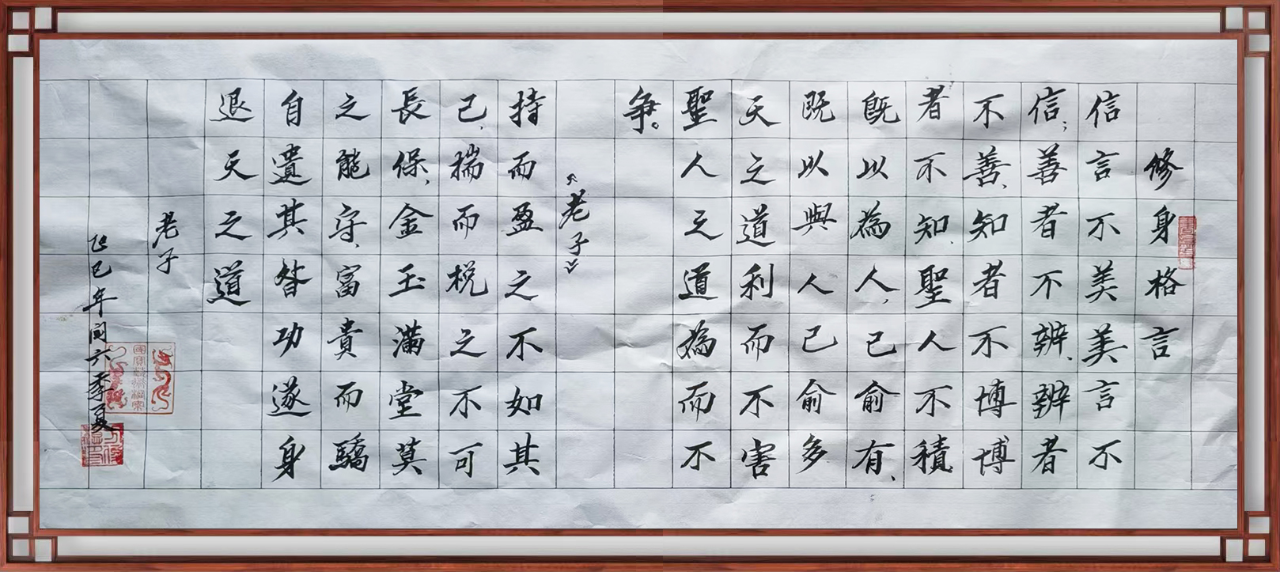 修身格言
信言不美美言不
信；善者不辨、辨者
不善、知者不博博
者不知、聖人不積
既以為人、己俞有、
既以與人己俞多
天之道利而不害
聖人之道為而不
争。
《老子》
持而盈之不如其
已、揣而梲之不可
長保、金玉滿堂莫
之能守、富貴而驕
自遺其咎功遂身
退天之道
老子
乙巳年闰六季夏